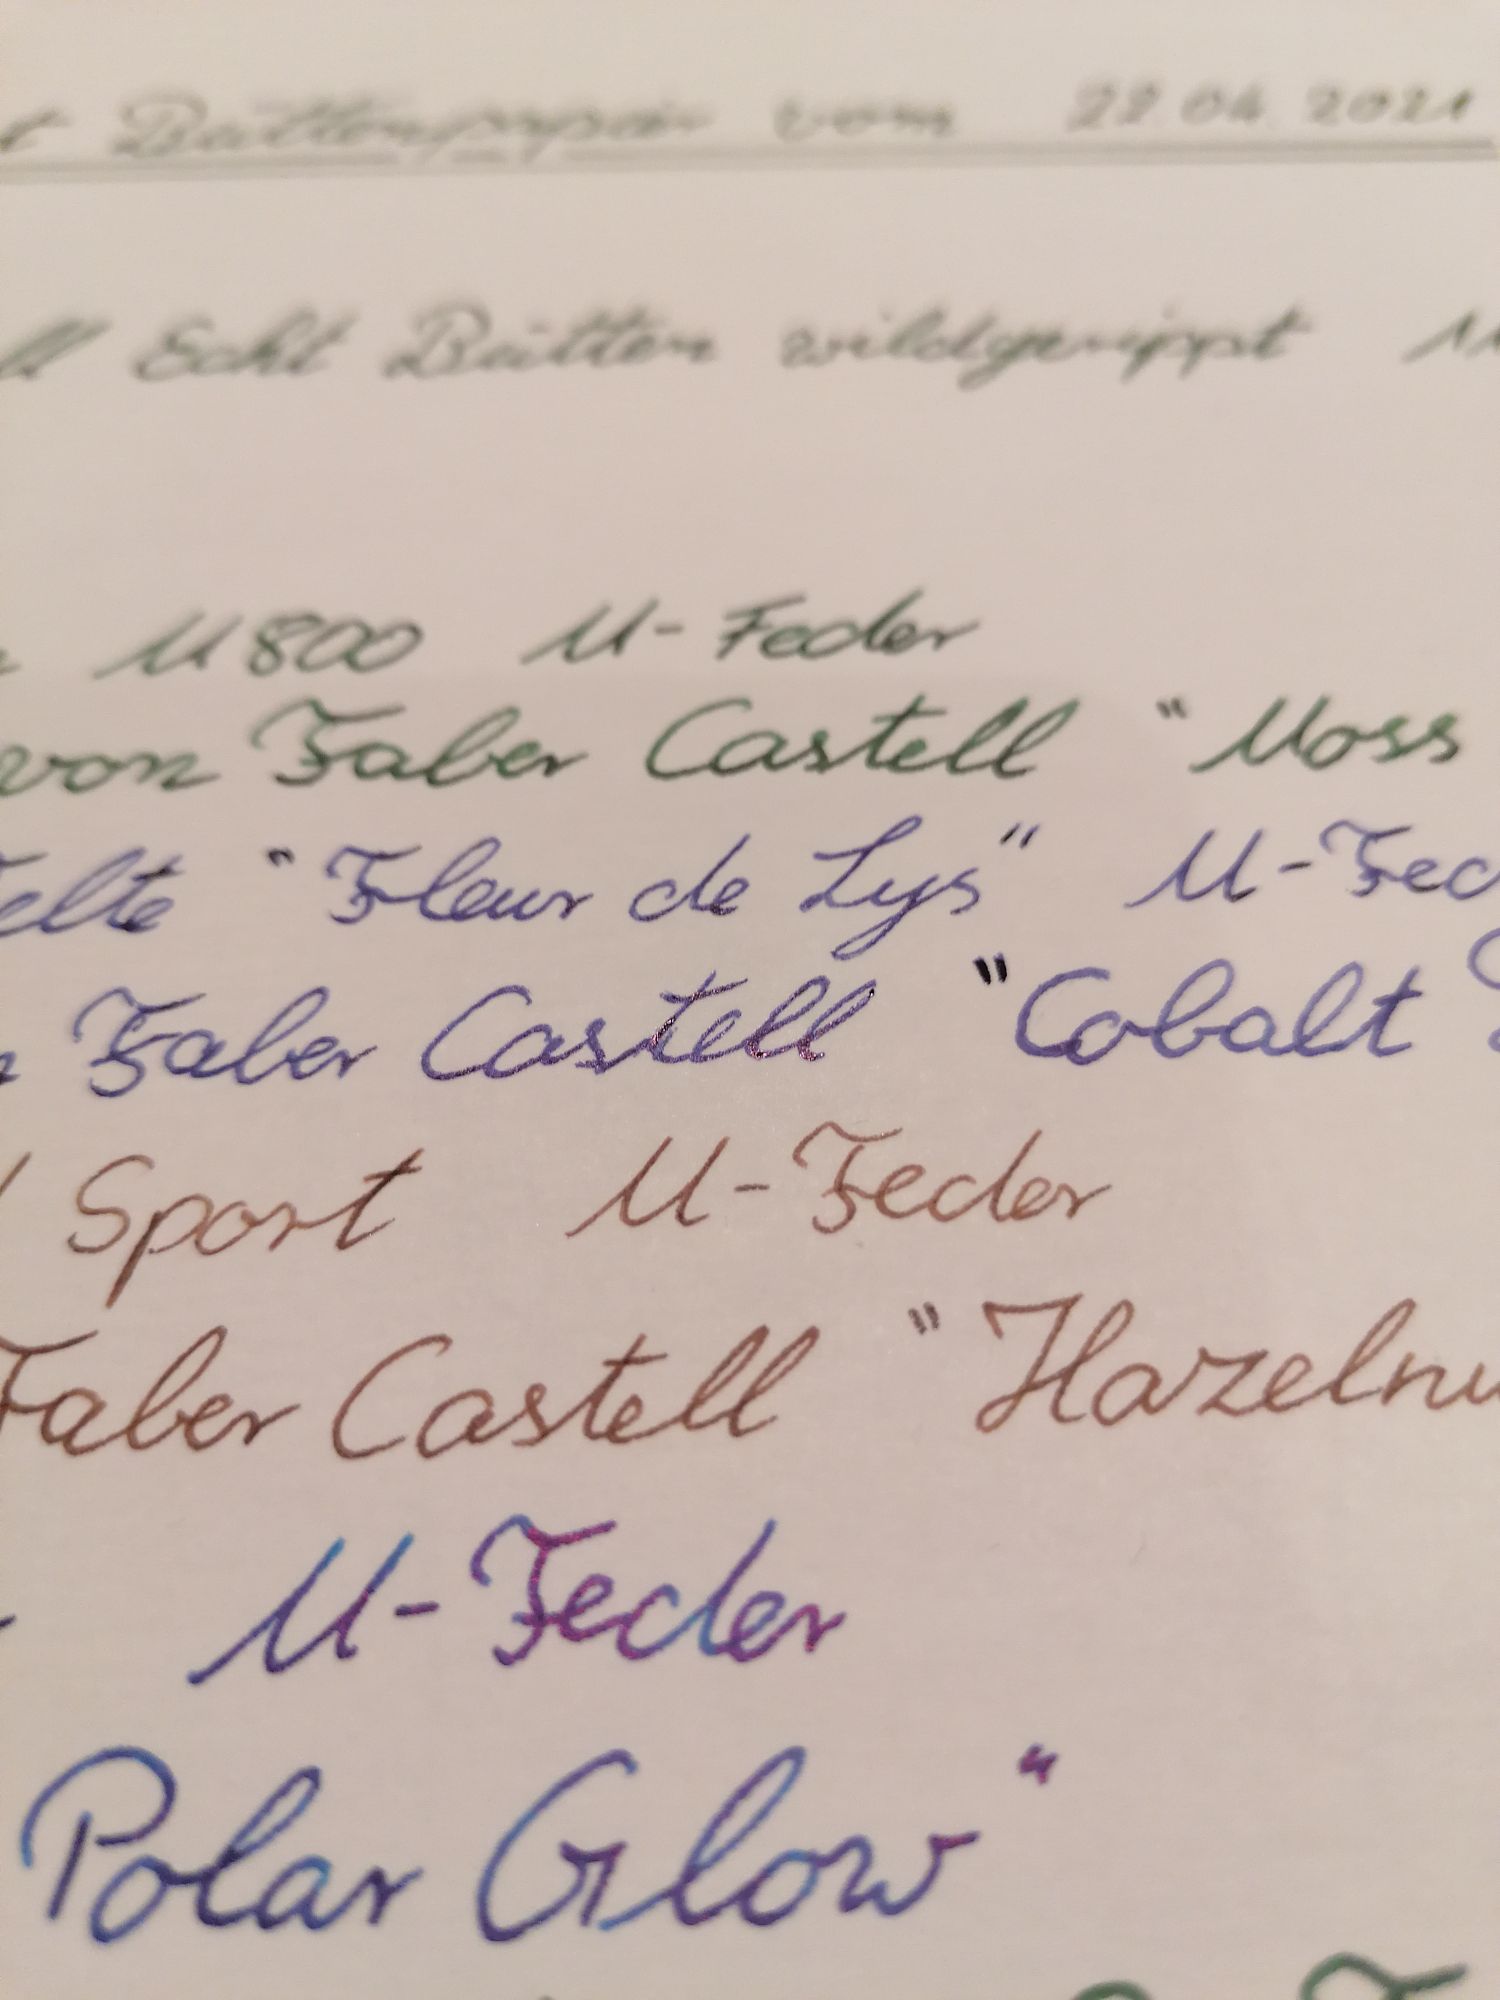 Büttenpapier vom 22.04.2021
Echt Bütten wildgerippt
M800 M-Feder
von Faber Castell "Moss
"Fleur de Lys" M-Fed
Faber Castell "Cobalt
Sport M-Feder
Faber Castell "Hazelnu
M-Feder
Polar Glow"